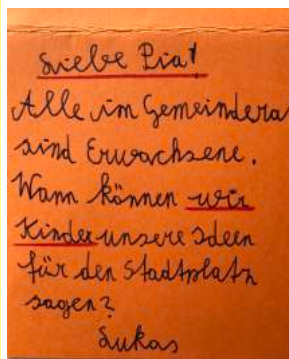 Liebe Pia!
Alle im Gemeindera
sind Erwachsene.
Wann können wir
Kinder unsere Ideen
für den Stadtplatz
sagen?
Lukas